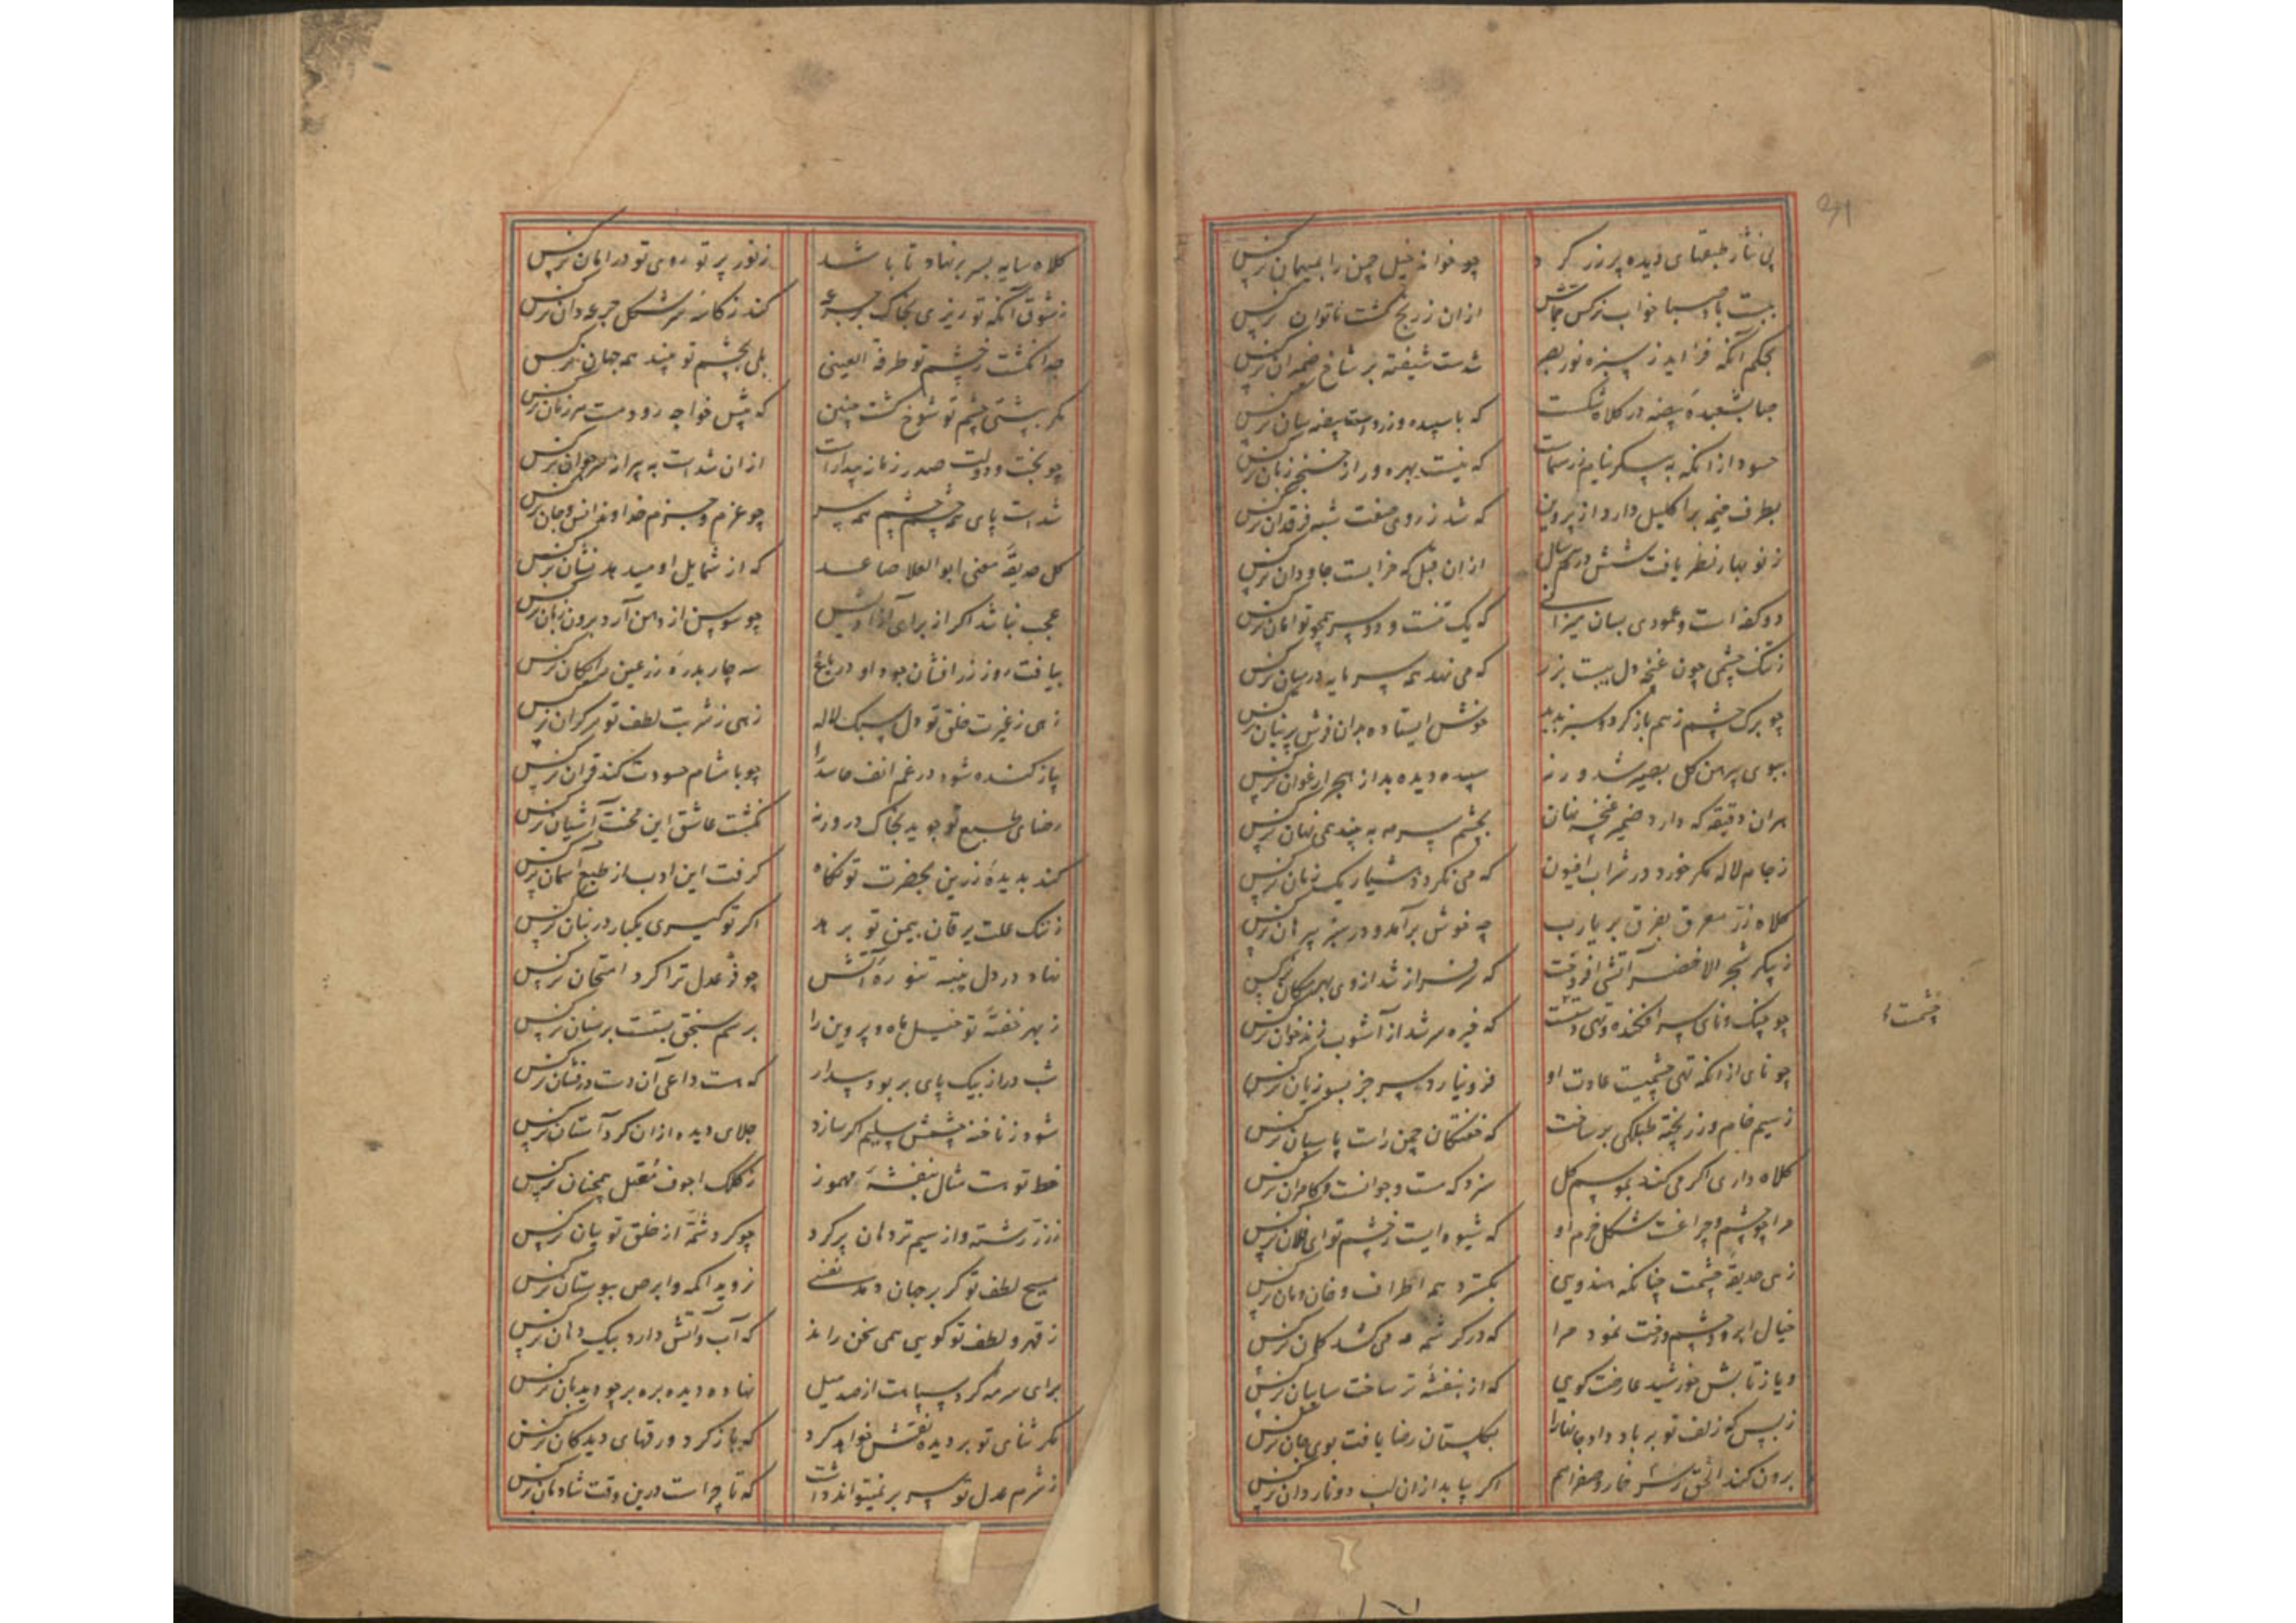 پی نثار طبقهای دیده پر زر کرد
چو خواند خیل چمن را بمیهمان نرکس
ببست باد صبا خواب نرکس جماش
ازان ز رنج کشت ناتوان نرکس
بحکم آنکه فزاید ز سبزه نور بصر
شدست شیفته بر شاخ ضیمران نرکس
صبا بشعبده بیضه در کلاه شکست
که با سپیده و زردهست بیضه سان نرکس
حسود ازانکه به پیکر بنیام زر سماست
که نیست بهره ور از خنجر زبان نرکس
بطرف خیمه بر اکلیل دارد از پروین
که شد ز روی صفت شبه فرقدان نرکس
ز نو بهار نظر یافت شش درم هر سال
ازان قبل که خرابست جاودان نرکس
دو کفه است و عمودی بسان میزانی
که یک تنست و دو سر همچو توامان نرکس
ز تنک چشمی چون غنچه دل ببست بزر
که می نهد همه سرمایه در میان نرکس
چو برک چشم ز هم باز کرد و سبزه بدید
خوش ایستاده بدان فرش پرنیان نرکس
ببوی پیرهن کل بصیر شد ور نه
سپیده دیده بد از هجر ارغوان نرکس
هران دقیقه که دارد ضمیر غنچه نهان
بچشم سرمه به بیند همی نهان نرکس
ز جام لاله مکر خورد در شراب افیون
که می نکردد هشیار یک زمان نرکس
کلاه زر مغرق بفرق بر یارب
چه خوش برآمد و در سبز پیرهان نرکس
ز پیکر شجر الاخضر آتشی افروخت
که سرفراز شد از وی بهر مکان نرکس
چو چنک و نای سر افکنده و تهی دستست
که خیره سر شد از آشوب زندخوان نرکس
چو نای ازانکه تهی چشمیست عادت او
فرو نیارد سر جز بسوزیان نرکس
ز سیم خام و زر پخته طبلکی بر ساخت
که خفتکان چمن راست پاسبان نرکس
کلاه داری اکر می کند بموسم کل
سزد که مست و جوانست و کامران نرکس
مرا چو چشم و چراغست شکل خرم او
که شیوه ایست ز چشم تو ای فلان نرکس
زهی حدیقه چشمت چنانکه هندویی
بکسترد همه اطراف و خان و مان نرکس
خیال ابرو و چشم و رخت نمود مرا
که در کرشمه مه می کشد کمان نرکس
و یا ز تابش خورشید عارضت کویی
که از بنفشه تر ساخت سایبان نرکس
ز بس که زلف تو بر باد داد جانها را
بکلستان رضا یافت بوی جان نرکس
برون کند الحق ز سر خمار و صفرا هم
اکر بیابد ازان لب دو ناردان نرکس
چشمت ء
کلاه سایه بسر بر نهاد تا باشد
ز نور پرتو روی تو در امان نرکس
ز شوق آنکه تو ریزی بخاک بر جرعه
کند ز کاسه سر شکل جرعه دان نرکس
جدا نکشت ز چشم تو طرفة العینی
بلی بچشم تو بیند همه جهان نرکس
مکر بپشتی چشم تو شوخ کشت چنین
که پیش خواجه رود مست هر زمان نرکس
چو بخت و دولت صدر زمانه بیدارست
ازان شدست به پیرانه سر جوان نرکس
شدست پای همه چشم و چشم همه سر
چو عزم و حزم خداوند انس و جان نرکس
کل حدیقه معنی ابوالعلا صاعد
که از شمایل او میدهد نشان نرکس
عجب نباشد اکر از برای آزادیش
چو سوسن از دهن آرد برون زبان نرکس
بیافت روز زر افشان جود او در باغ
سه چار بدره زر عین رایکان نرکس
زهی ز غیرت خلق تو دل سبک لاله
زهی ز شربت لطف تو سرکران نرکس
پیاز کنده شود در غم انف حاسد را
چو با مشام حسودت کند قران نرکس
رضای طبع تو جوید بخاک در ور نه
نکشت عاشق این محنت آشیان نرکس
کند بدیده زرین بحضرت تو نکاه
کرفت این ادب از طبع آسمان نرکس
ز ننک علت یرقان بیمن تو برهد
اکر تو کیری یکبار در بنان نرکس
نهاد در دل پنبه تنوره آتش
چو فر عدل ترا کرد امتحان نرکس
ز بهر خفته تو خیل ماه و پروین را
برسم سنجق بستست بر سنان نرکس
شب دراز بیک پای بر بود بیدار
که هست داعی آن دست درفشان نرکس
شود ز ناخنه چشمش سلیم اکر سازد
جلای دیده ازان کرد آستان نرکس
خط تو هست مثال بنفشه مهموز
ز کلک اجوف معتل همچنان نرکس
ز زر رشته و از سیم تر دهان پر کرد
چو کرد شمه از خلق تو بیان نرکس
مسیح لطف تو کر بر جهان دمد نفسی
ز وید اکمه و ابرص ببوستان نرکس
ز قهر و لطف تو کویی همی سخن راند
که آب و آتش دارد بیک دهان نرکس
برای سرمه کرد سپاهت از صد میل
نهاده دیده بره بر چو دیدبان نرکس
مکر ثنای تو بر دیده نقش خواهد کرد
که باز کرد ورقهای دیدکان نرکس
ز شرم عدل تو سر بر نمیتواند داشت
که تا چراست درین وقت شادمان نرکس